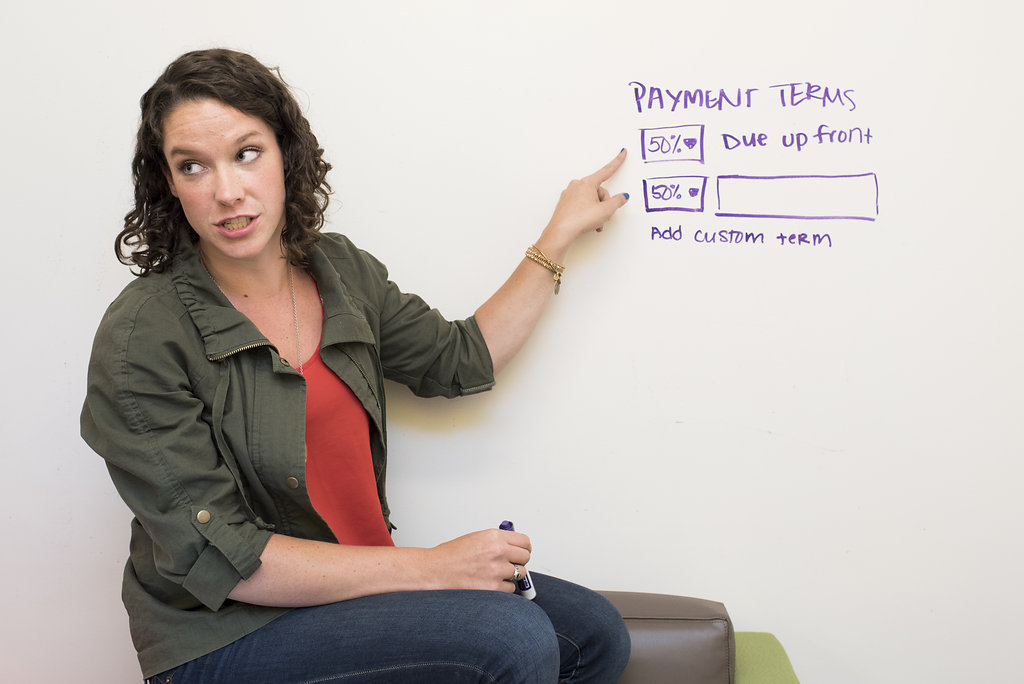 PAYMENT TERMS
50% Due up front
50%
Add custom term